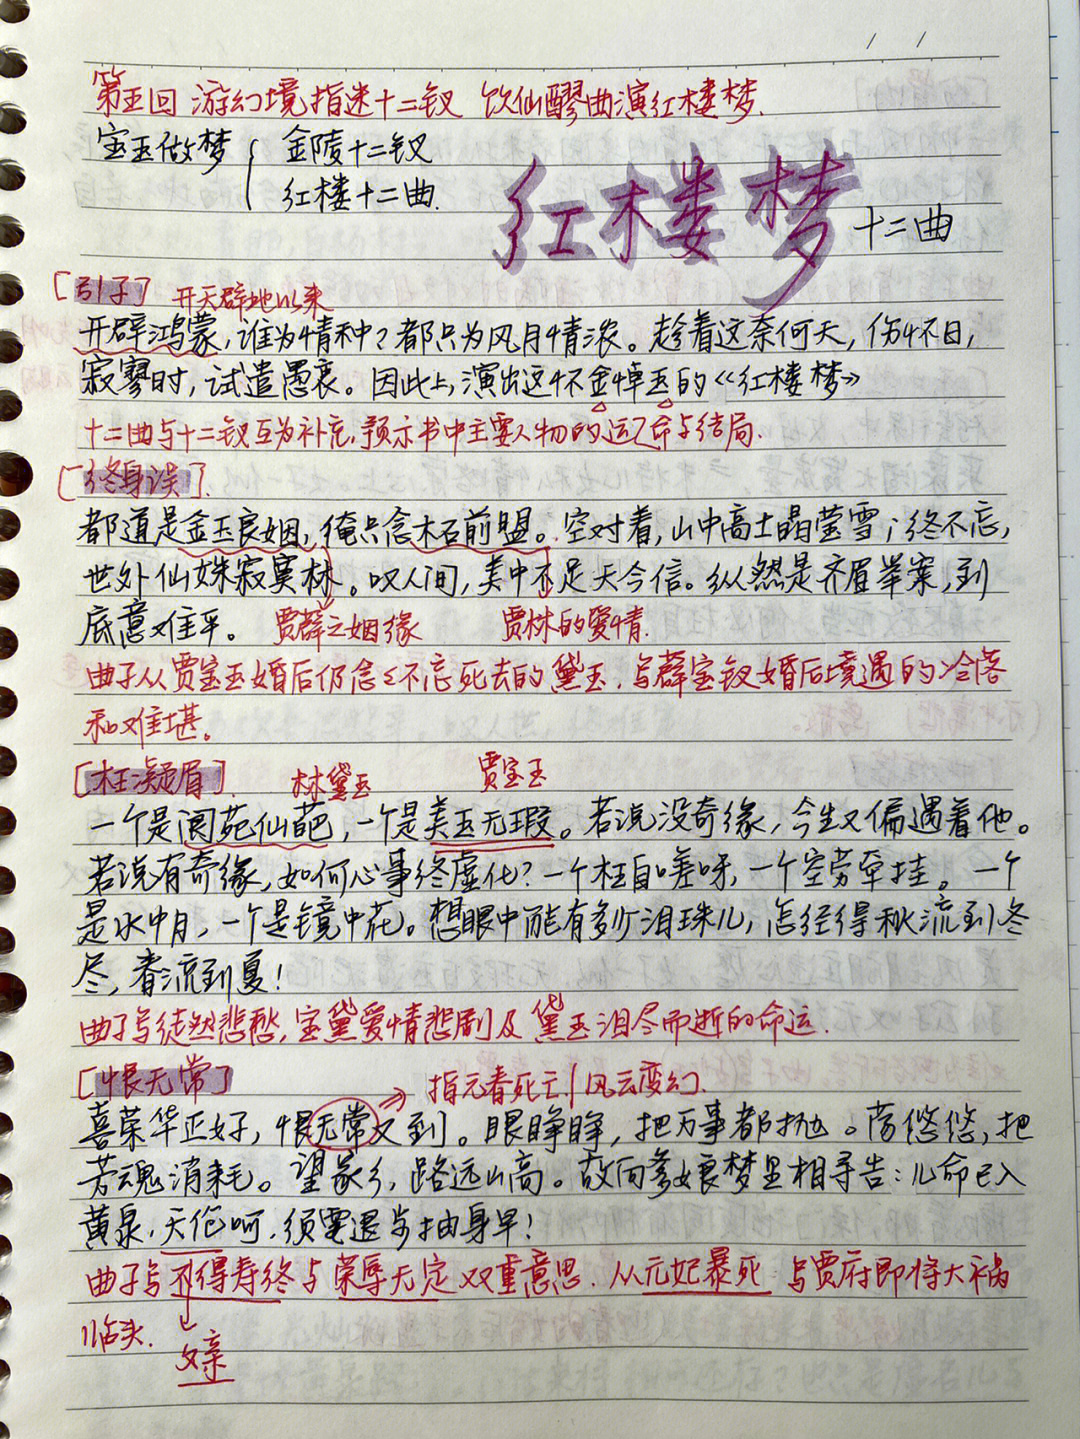 第五回 游幻境指迷十二钗 饮仙醪曲演红楼梦.
宝玉做梦 { 金陵十二钗
红楼十二曲.
红楼梦 十二曲
[引子] 开天辟地以来
开辟鸿蒙,谁为情种?都只为风月情浓。趁着这奈何天,伤怀日,
寂寥时,试遣愚衷。因此上,演出这怀金悼玉的《红楼梦》
十二曲与十二钗互为补充,预示书中主要人物的运命与结局.
[终身误].
都道是金玉良姻,俺只念木石前盟。空对着,山中高士晶莹雪;终不忘,
世外仙姝寂寞林。叹人间,美中不足天今信。纵然是齐眉举案,到
底意难平。 贾薛之姻缘 贾林的爱情.
曲子从贾宝玉婚后仍念念不忘死去的黛玉,与薛宝钗婚后境遇的冷落
和难堪。
[枉凝眉]. 林黛玉 贾宝玉
一个是阆苑仙葩,一个是美玉无瑕。若说没奇缘,今生又偏遇着他。
若说有奇缘,如何心事终虚化?一个枉自嗟呀,一个空劳牵挂。一个
是水中月,一个是镜中花。想眼中能有多少泪珠儿,怎经得秋流到冬
尽,春流到夏!
曲子与徒然悲愁,宝黛爱情悲剧及黛玉泪尽而逝的命运.
[恨无常] 指元春死亡/风云变幻.
喜荣华正好,恨无常又到。眼睁睁,把万事都抛。荡悠悠,把
芳魂消耗。望家乡,路远山高。故向爹娘梦里相寻告:儿命已入
黄泉,天伦呵,须要退步抽身早!
曲子与不得寿终与荣辱无定双重意思.从元妃暴死 与贾府即将大祸
临头.
父亲